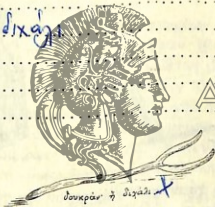 διχάλι
δουκράν' ἢ διχάλι